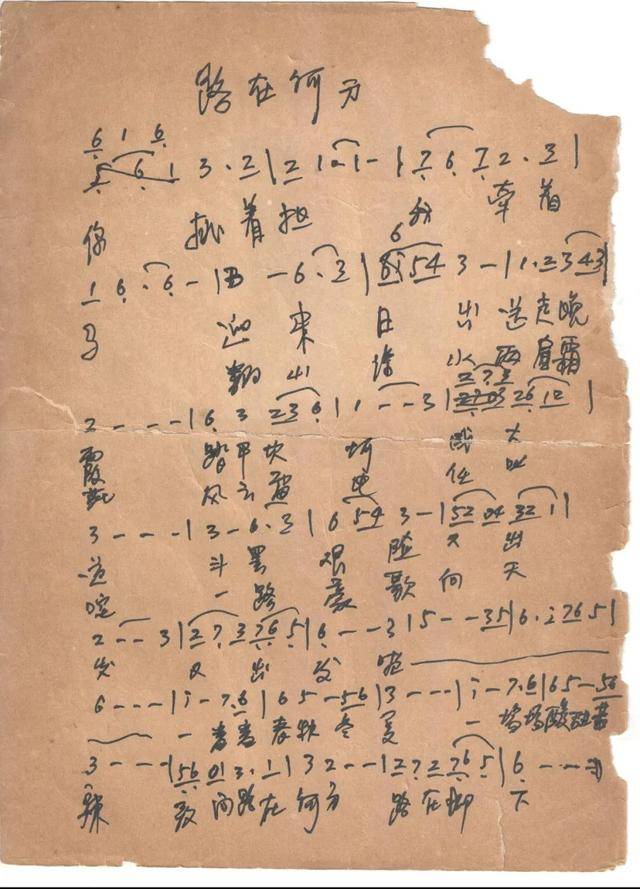 路在何方
6 1 6
5 6 1 3·2|2 1·1-|7 6 7 2·3|
你 挑着担 我 牵着
1 6·6-| -6·3|6i54 3-|1·2343|
马 迎来日出送走晚
翻山涉水两肩霜
2---|6 3 236|1--3| 26 12|
霞 踏平坎坷成大
风云
3---|3-6·3|6 54 3-|52 04 32 1|
道 斗罢艰险又出
一路豪歌向天
2--3|27 376 5|6--3|5--35|6·i 765|
发 又出发 啦
6---|i-7·6|65-56|3---|i-7·6|65-56
一番番春秋冬夏一场场酸甜苦
3---|56 01 3·1|32--|27 276 5|6---
辣 敢问路在何方 路在脚下